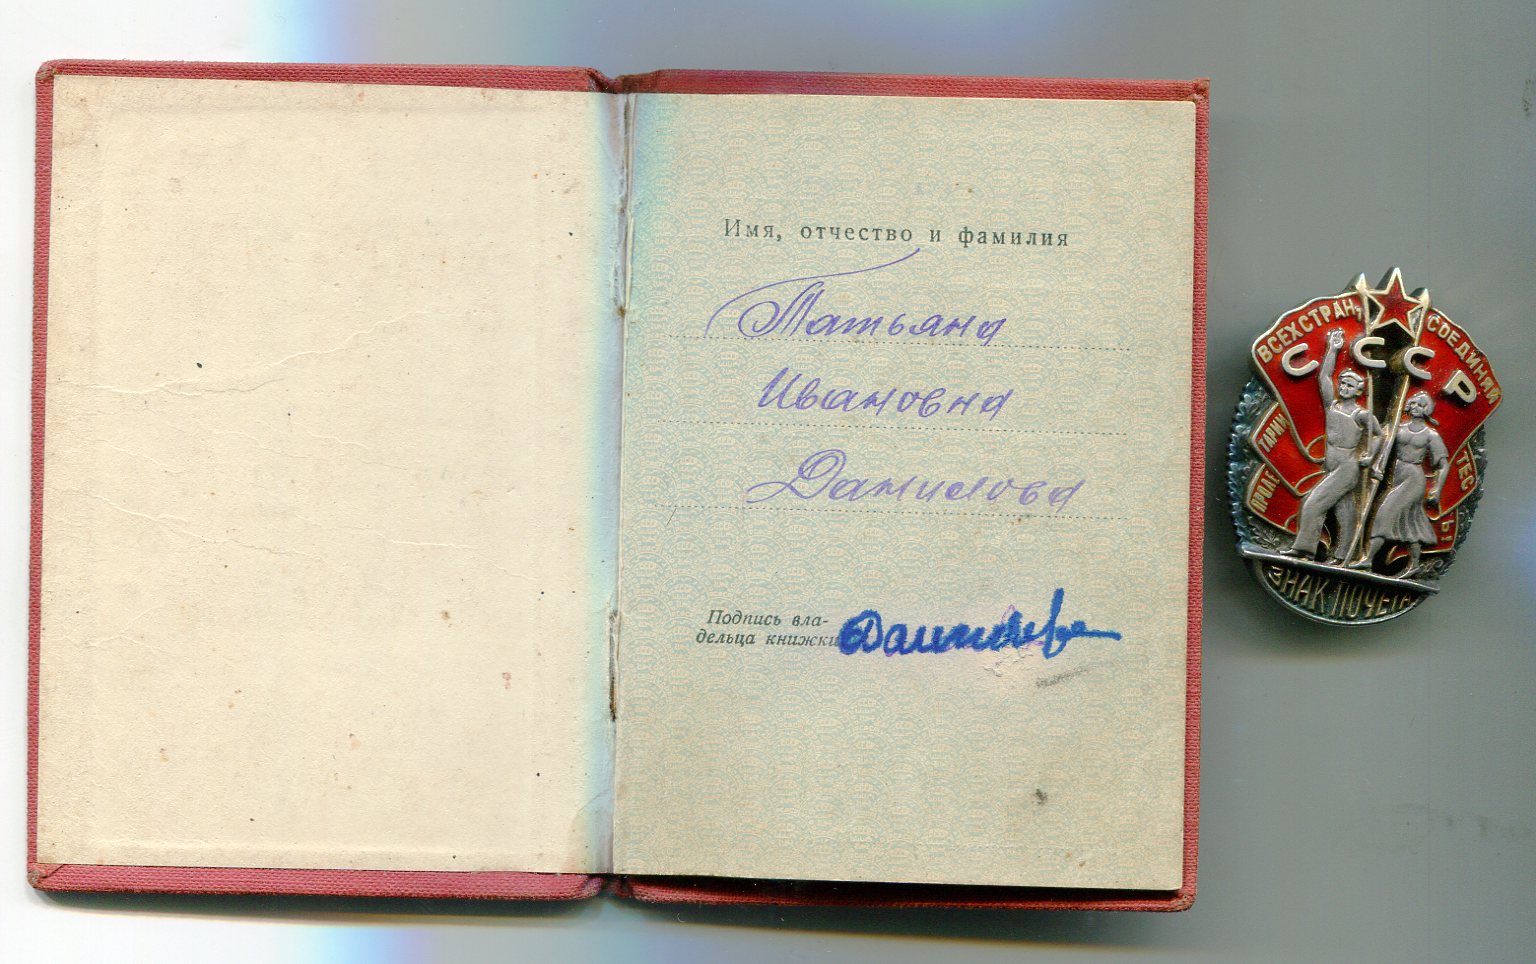 Имя, отчество и фамилия
Татьяна
Ивановна
Данилова
Подпись вла-
дельца книжки
Данилова
ВСЕХ СТРАН, СОЕДИНЯЙ
СССР
ПРОЛЕ
ТАРИИ
ТЕС
Ь!
ЗНАК ПОЧЕТА